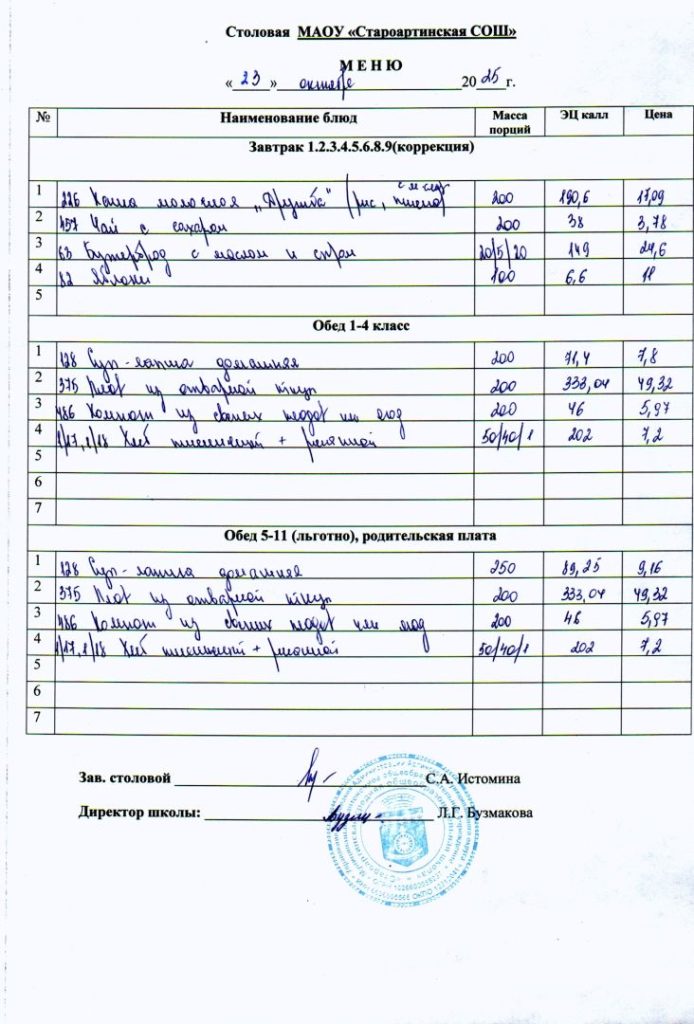 Столовая МАОУ «Староартинская СОШ»
М Е Н Ю
« 23 » октября 20 25 г.
№ Наименование блюд Масса порций ЭЦ калл Цена
Завтрак 1.2.3.4.5.6.8.9(коррекция)
1 226 Каша молочная „Дружба" (рис, пшено) с маслом 200 190,6 17,09
2 457 Чай с сахаром 200 38 3,78
3 63 Бутерброд с маслом и сыром 20/5/20 149 24,6
4 82 Яблоки 100 6,6 11
5
Обед 1-4 класс
1 128 Суп-лапша домашняя 200 71,4 7,8
2 375 Плов из отварной птицы 200 333,04 49,32
3 486 Компот из свежих плодов или ягод 200 46 5,97
4 1/17,1/18 Хлеб пшеничный + ржаной 50/40/1 202 7,2
5
6
7
Обед 5-11 (льготно), родительская плата
1 128 Суп-лапша домашняя 250 89,25 9,16
2 375 Плов из отварной птицы 200 333,04 49,32
3 486 Компот из свежих плодов или ягод 200 46 5,97
4 1/17,1/18 Хлеб пшеничный + ржаной 50/40/1 202 7,2
5
6
7
Зав. столовой С.А. Истомина
Директор школы: Л.Г. Бузмакова